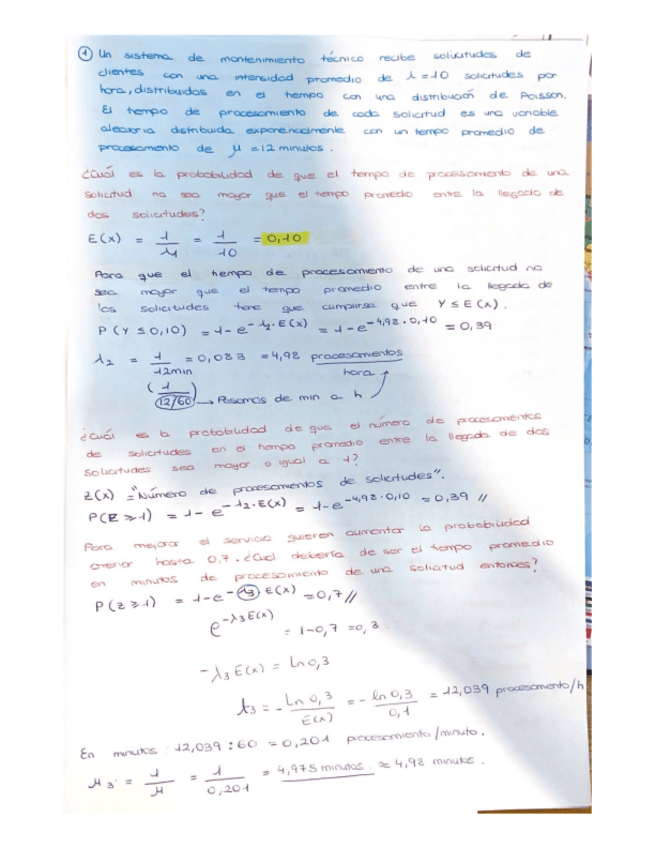 ① Un sistema de mantenimiento técnico recibe solicitudes de
clientes con una intensidad promedio de λ = 10 solicitudes por
hora, distribuidas en el tiempo con una distribución de Poisson.
El tiempo de procesamiento de cada solicitud es una variable
aleatoria distribuida exponencialmente con un tiempo promedio de
procesamiento de μ = 12 minutos.
¿Cuál es la probabilidad de que el tiempo de procesamiento de una
solicitud no sea mayor que el tiempo promedio entre la llegada de
dos solicitudes?
E(x) = 1/λ1 = 1/10 = 0,10
Para que el tiempo de procesamiento de una solicitud no
sea mayor que el tiempo promedio entre la llegada de
los solicitudes tiene que cumplirse que Y ≤ E(x).
P(Y ≤ 0,10) = 1-e^-λ2·E(x) = 1-e^-4,98·0,10 = 0,39
λ2 = 1/12min = 0,083 = 4,98 procesamientos/hora
(1/(12/60)) → Pasamos de min a h
¿Cuál es la probabilidad de que el número de procesamientos
de solicitudes en el tiempo promedio entre la llegada de dos
solicitudes sea mayor o igual a 1?
Z(x) = "Número de procesamientos de solicitudes".
P(Z ≥ 1) = 1-e^-λ2·E(x) = 1-e^-4,98·0,10 = 0,39 //
Para mejorar el servicio quieren aumentar la probabilidad
anterior hasta 0,7. ¿Cuál debería de ser el tiempo promedio
en minutos de procesamiento de una solicitud entonces?
P(Z ≥ 1) = 1-e^-λ3 E(x) = 0,7 //
e^-λ3E(x) = 1-0,7 = 0,3
-λ3 E(x) = Ln 0,3
λ3 = - Ln 0,3/E(x) = - ln 0,3/0,1 = 12,039 procesamiento/h
En minutos: 12,039 : 60 = 0,201 procesamiento/minuto.
μ3 = 1/μ = 1/0,201 = 4,975 minutos ≈ 4,98 minutos.